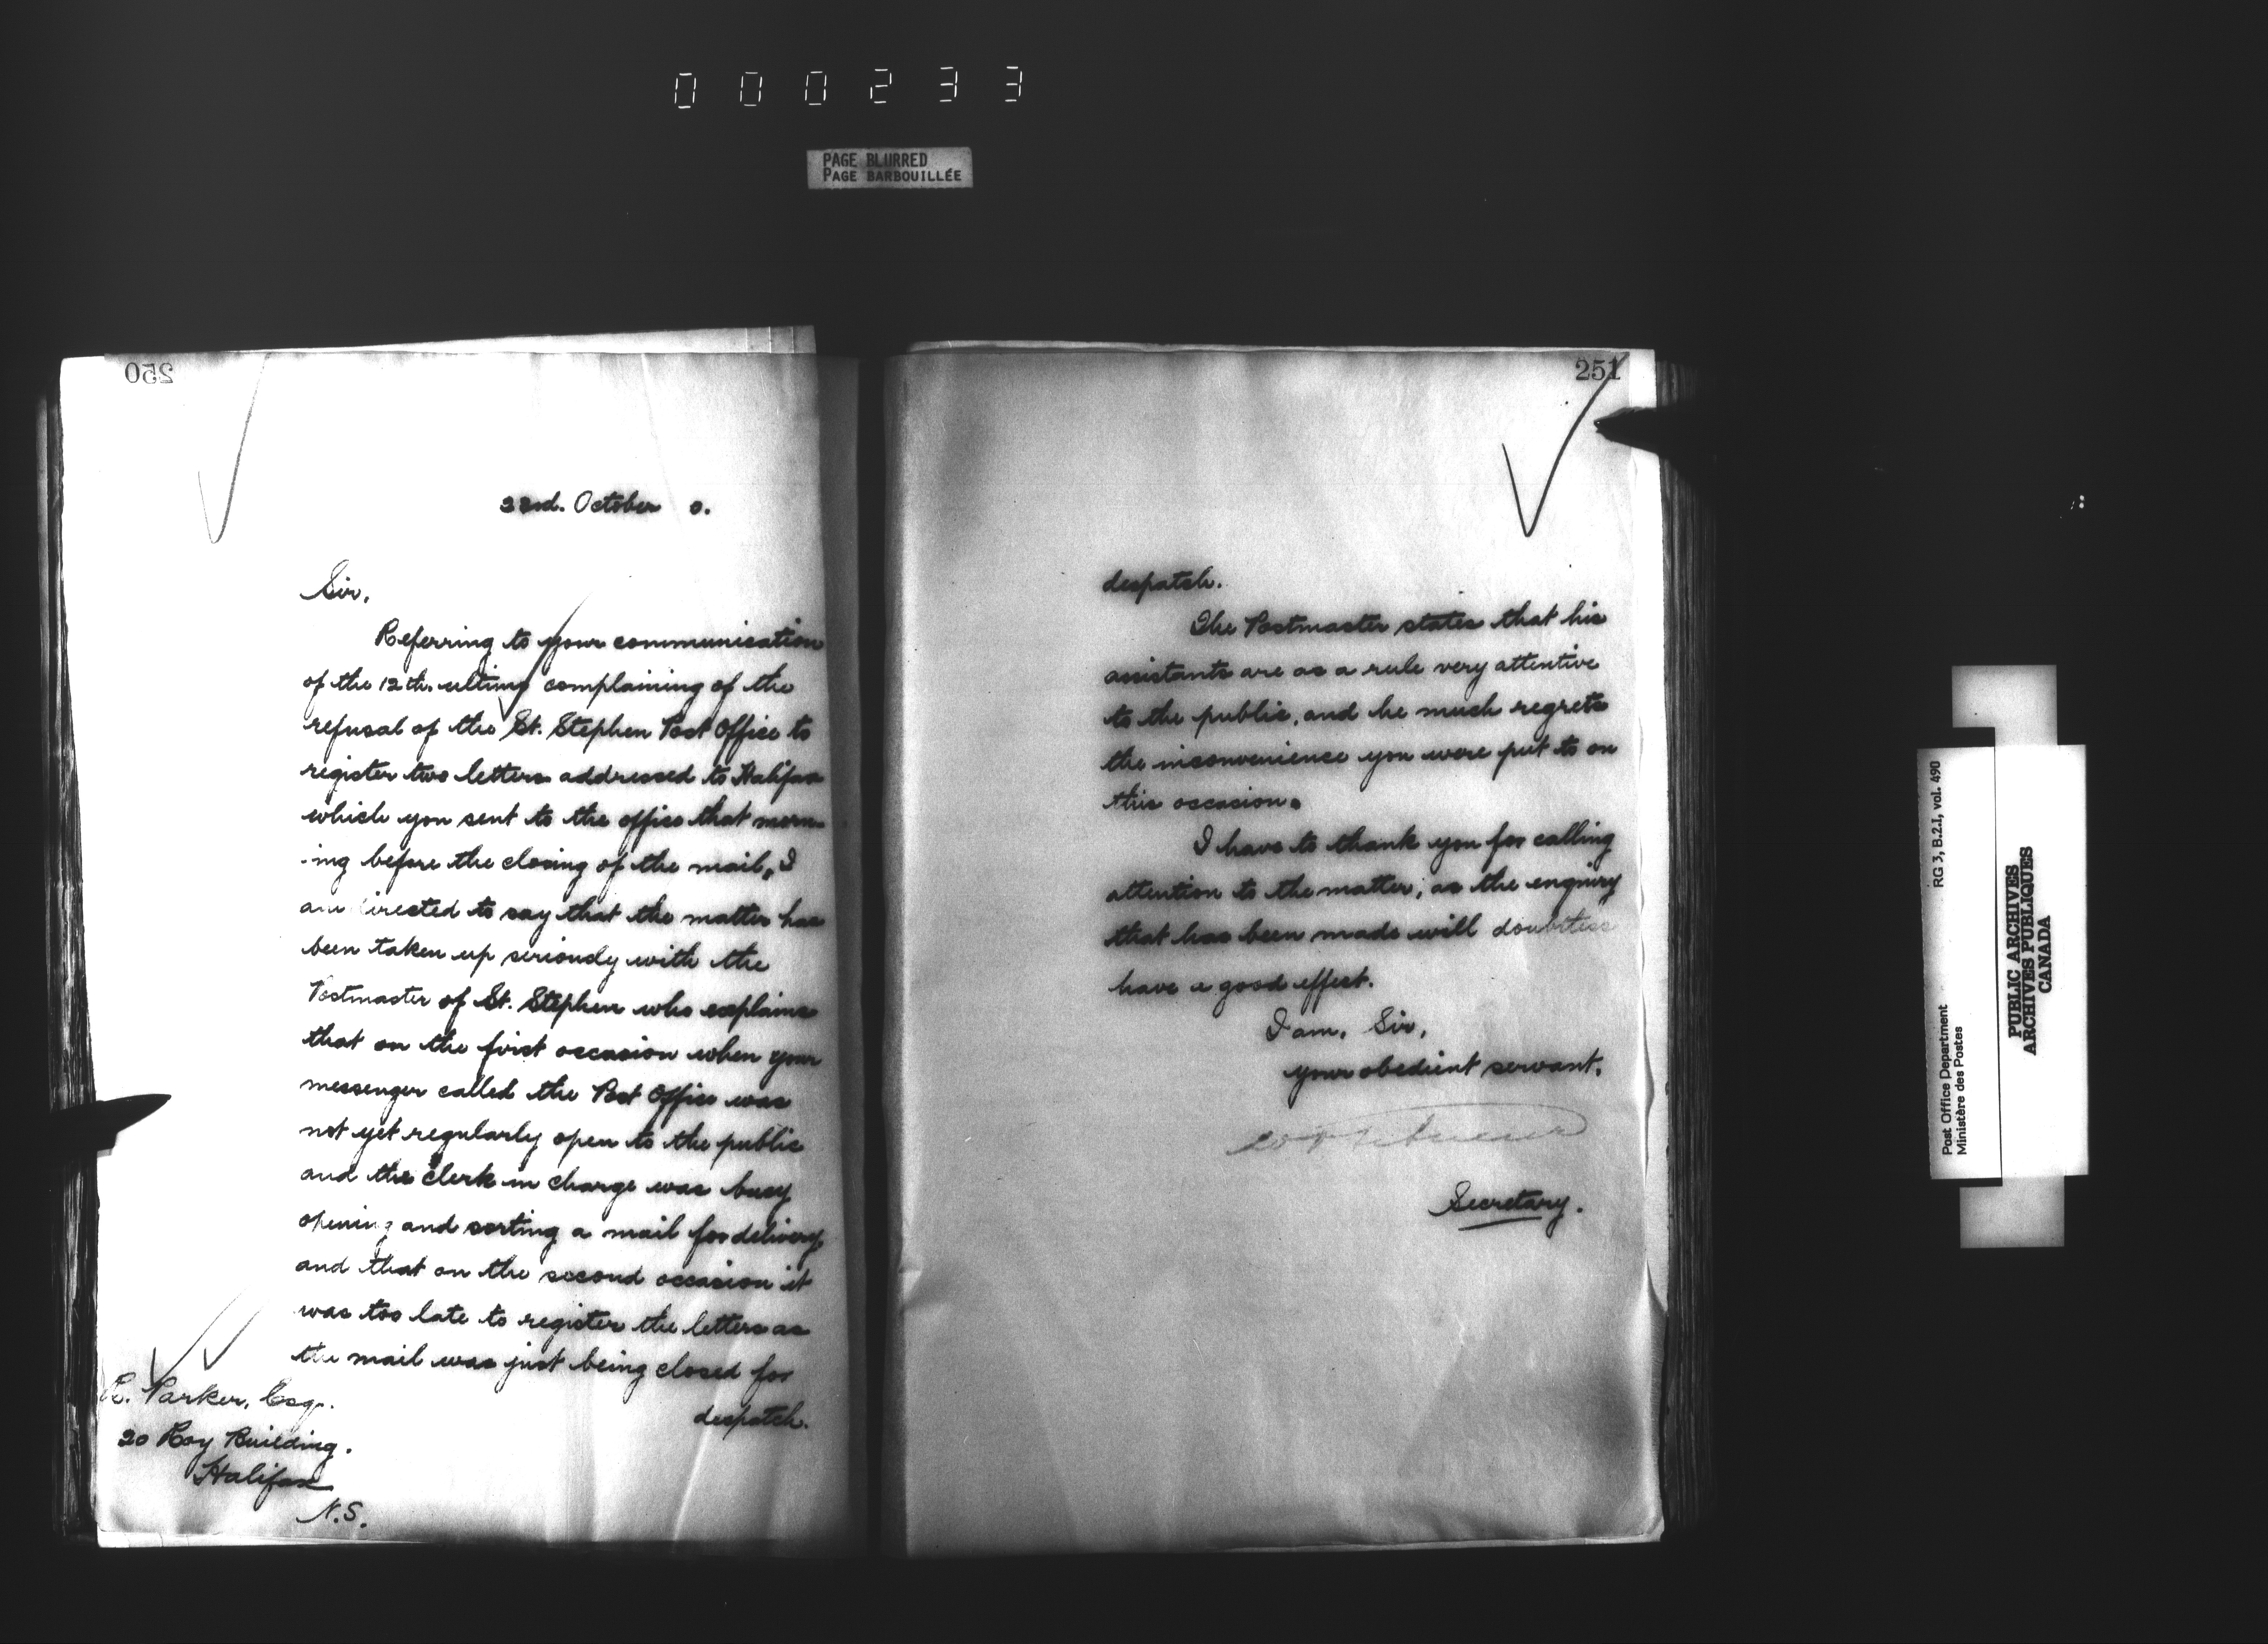 000233
PAGE BLURRED
PAGE BARBOUILLÉE
250
22nd. October 0.
Sir,
Referring to your communication
of the 12th. ultimo complaining of the
refusal of the St. Stephen Post Office to
register two letters addressed to Halifax
which you sent to the office that morn-
-ing before the closing of the mail, I
am directed to say that the matter has
been taken up seriously with the
Postmaster of St. Stephen who explains
that on the first occasion when your
messenger called the Post Office was
not yet regularly open to the public
and the clerk in charge was busy
opening and sorting a mail for delivery,
and that on the second occasion it
was too late to register the letters as
the mail was just being closed for
despatch.
Parker, Esq.
20 Roy Building.
Halifax
N.S.
251
despatch.
The Postmaster states that his
assistants are as a rule very attentive
to the public, and he much regrets
the inconvenience you were put to on
this occasion.
I have to thank you for calling
attention to the matter, as the enquiry
that has been made will doubtless
have a good effect.
I am, Sir,
your obedient servant.
Secretary.
RG 3, B.2.1, vol. 490
Post Office Department
Ministère des Postes
PUBLIC ARCHIVES
ARCHIVES PUBLIQUES
CANADA